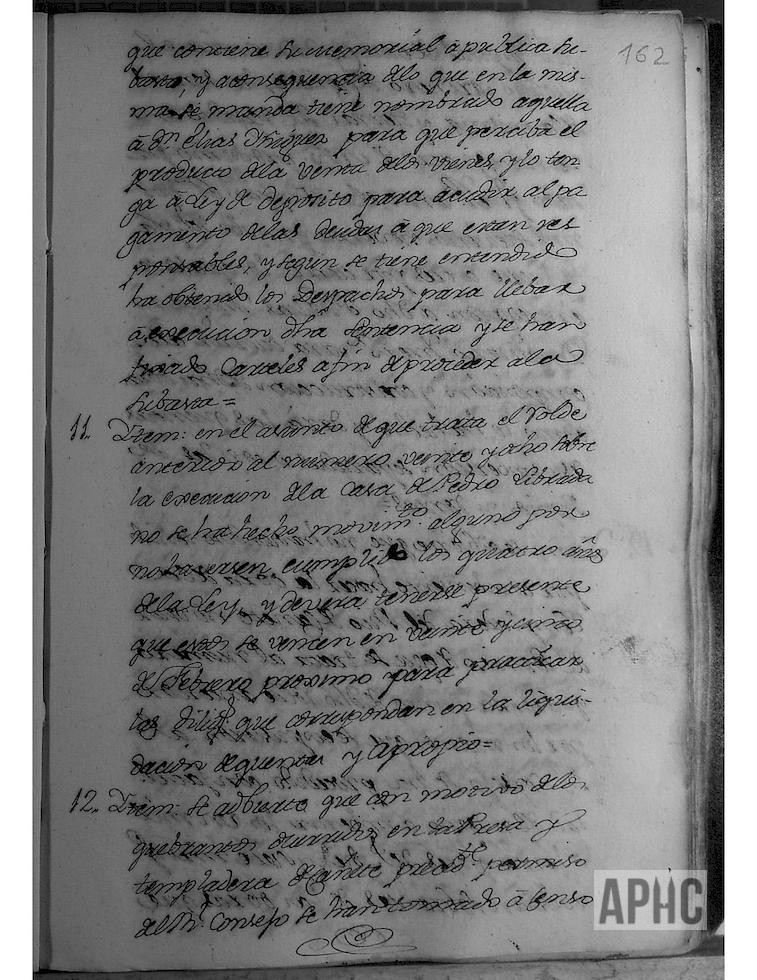 162
que contiene su Memorial a publica su-
basta, y aconsequencia dlo que en la mis-
ma se manda tiene nombrado aquella
â Dn. Elias Yñiguez para que perciba el
producto dla Venta dlos vienes, y lo ten-
ga â Ley de deposito para acudir al pa
gamento delas deudas â que estan res
ponsables, y segun se tiene entendido
ha obtenido los Despachos para llebar
a execucion dha Sentencia y se han
fixado Carteles afin de proceder ala
subasta =
11. Ytem: en el asunto de que trata el Volde
antecedo al numero veinte y ocho sobre
la execucion dla Casa de Pedro Librada
no se ha hecho movimto. alguno por
no haversen cumplido los quatro años
dela Ley, y devera tenerse presente
que estos se vencen en veinte y cinco
de Febrero proximo para practicar
las diligs. que correspondan en la liqui-
dacion de quentas y apropio =
12. Ytem: se advierte que con motivo dlos
quebrantos ocurridos en la Presa y
templadera de Cañete precdte. permiso
del Rl. Consejo se han tomado â Censo
APHC